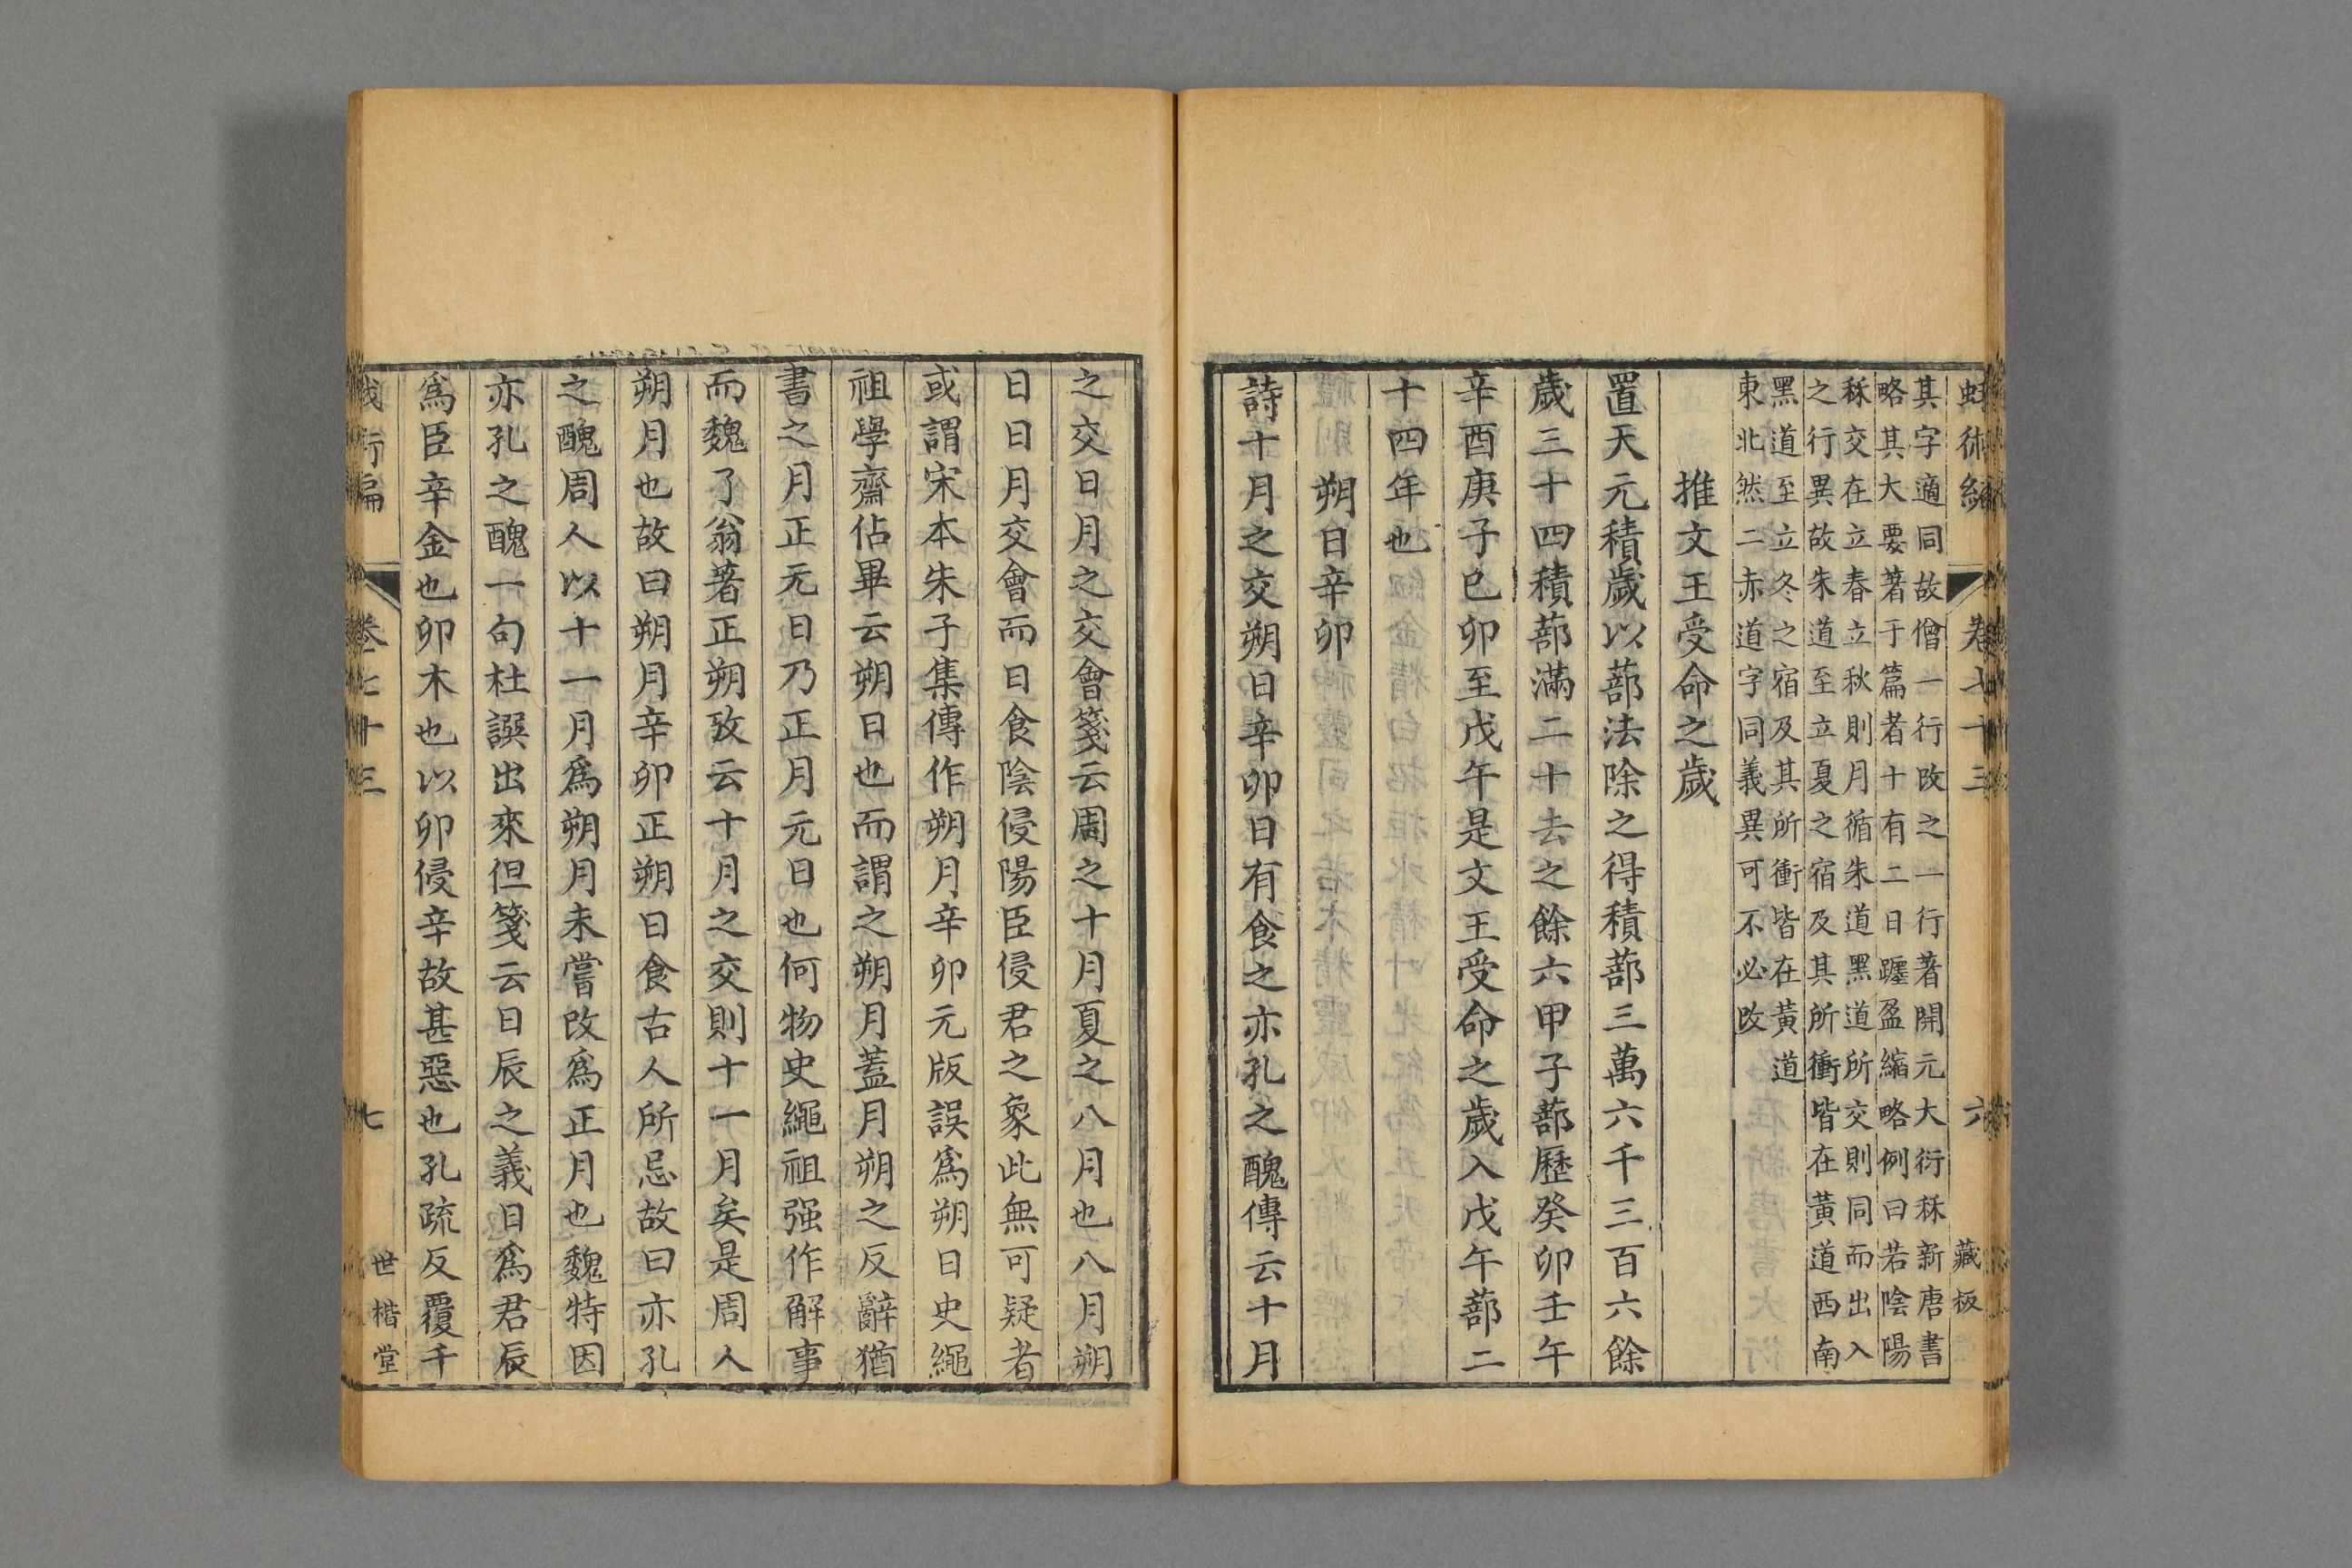 卷七十三
六
藏板
其字適同故僧一行改之一行著開元大衍秝新唐書
略其大要著于篇者十有二日躔盈縮略例曰若陰陽
秝交在立春立秋則月循朱道黑道所交則同而出入
之行異故朱道至立夏之宿及其所衝皆在黃道西南
黑道至立冬之宿及其所衝皆在黃道
東北然二赤道字同義異可不必改
推文王受命之歲
置天元積歲以蔀法除之得積蔀三萬六千三百六餘
歲三十四積蔀滿二十去之餘六甲子蔀歷癸卯壬午
辛酉庚子己卯至戊午是文王受命之歲入戊午蔀二
十四年也
朔日辛卯
詩十月之交朔日辛卯日有食之亦孔之醜傳云十月
之交日月之交會箋云周之十月夏之八月也八月朔
日日月交會而日食陰侵陽臣侵君之象此無可疑者
或謂宋本朱子集傳作朔月辛卯元版誤爲朔日史繩
祖學齋佔畢云朔日也而謂之朔月蓋月朔之反辭猶
書之月正元日乃正月元日也何物史繩祖强作解事
而魏了翁著正朔攷云十月之交則十一月矣是周人
朔月也故曰朔月辛卯正朔日食古人所忌故曰亦孔
之醜周人以十一月爲朔月未嘗改爲正月也魏特因
亦孔之醜一句杜譔出來但箋云日辰之義日爲君辰
爲臣辛金也卯木也以卯侵辛故甚惡也孔疏反覆千
卷七十三
七
世楷堂